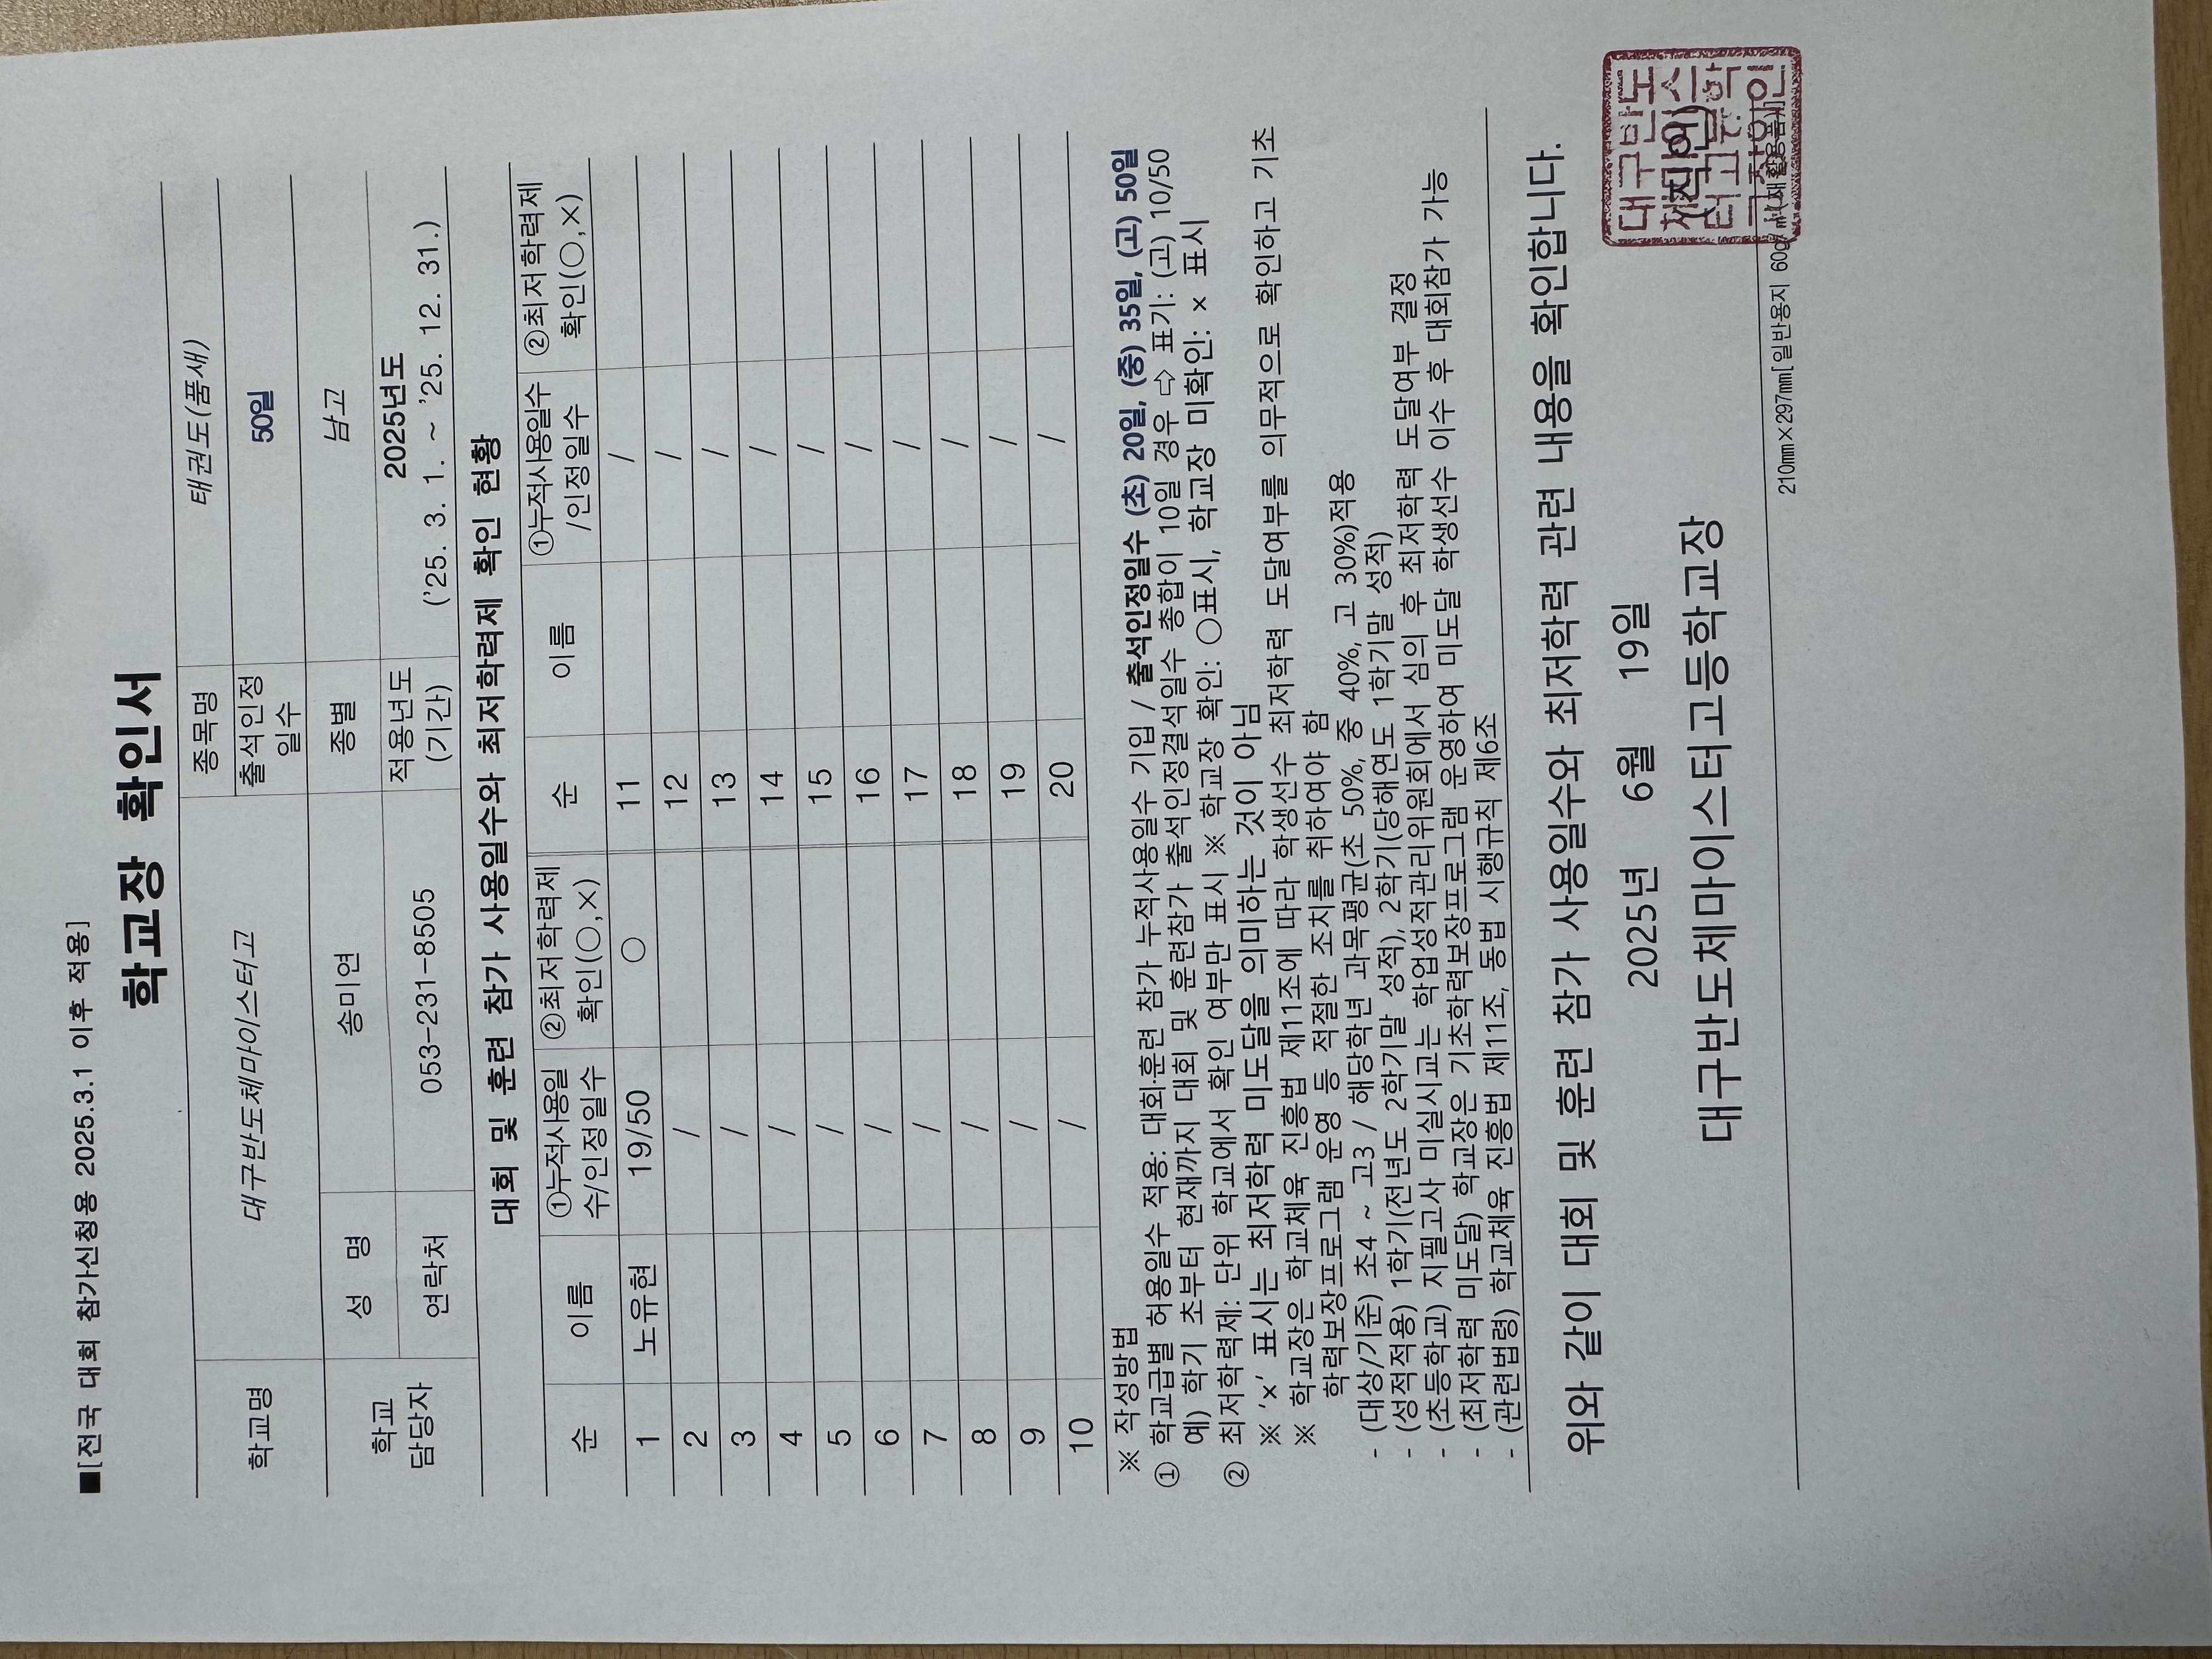 ■[전국 대회 참가신청용 2025.3.1 이후 적용]
학교장 확인서
학교명 대구반도체마이스터고 종목명 태권도(품새)
출석인정일수 50일
학교 담당자 성 명 송미연 종별 남고
연락처 053-231-8505 적용년도 (기간) 2025년도 ('25. 3. 1. ~ '25. 12. 31.)
대회 및 훈련 참가 사용일수와 최저학력제 확인 현황
순 이름 ①누적사용일수/인정일수 ②최저학력제 확인(○,×) 순 이름 ①누적사용일수/인정일수 ②최저학력제 확인(○,×)
1 노유현 19/50 ○ 11 /
2 / 12 /
3 / 13 /
4 / 14 /
5 / 15 /
6 / 16 /
7 / 17 /
8 / 18 /
9 / 19 /
10 / 20 /
※ 작성방법
① 학교급별 허용일수 적용: 대회·훈련 참가 누적사용일수 기입 / 출석인정일수 (초) 20일, (중) 35일, (고) 50일
예) 학기 초부터 현재까지 대회 및 훈련참가 출석인정결석일수 총합이 10일 경우 ⇨ 표기: (고) 10/50
② 최저학력제: 단위 학교에서 확인 여부만 표시 ※ 학교장 확인: ○표시, 학교장 미확인: × 표시
※ '×' 표시는 최저학력 미도달을 의미하는 것이 아님
※ 학교장은 학교체육 진흥법 제11조에 따라 학생선수 최저학력 도달여부를 의무적으로 확인하고 기초
학력보장프로그램 운영 등 적절한 조치를 취하여야 함
- (대상/기준) 초4 ~ 고3 / 해당학년 과목평균(초 50%, 중 40%, 고 30%)적용
- (성적적용) 1학기(전년도 2학기말 성적), 2학기(당해연도 1학기말 성적)
- (초등학교) 지필고사 미실시교는 학업성적관리위원회에서 심의 후 최저학력 도달여부 결정
- (최저학력 미도달) 학교장은 기초학력보장프로그램 운영하여 미도달 학생선수 이수 후 대회참가 가능
- (관련법령) 학교체육 진흥법 제11조, 동법 시행규칙 제6조
위와 같이 대회 및 훈련 참가 사용일수와 최저학력 관련 내용을 확인합니다.
2025년 6월 19일
대구반도체마이스터고등학교장 (직인)
대구반도
체마이스
터고등학
교장의인
210㎜×297㎜[일반용지 60g/㎡(재활용품)]